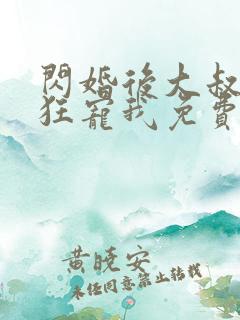 閃婚後大叔
狂寵我免費
黃曉安
未經同意禁止轉載